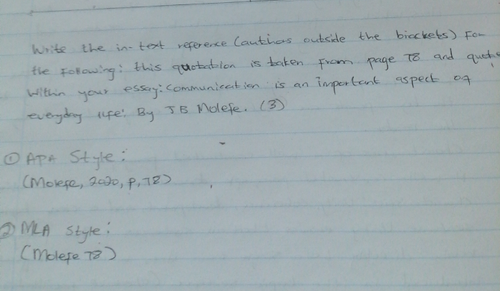 Write the in-text reference (authors outside the brackets) For
the following: this quotation is taken from page 78 and quoted
Within your essay: communication is an important aspect of
everyday life: By JB Molefe. (3)
① APA Style:
(Molefe, 2020, p. 78)
② MLA Style:
(Molefe 78)